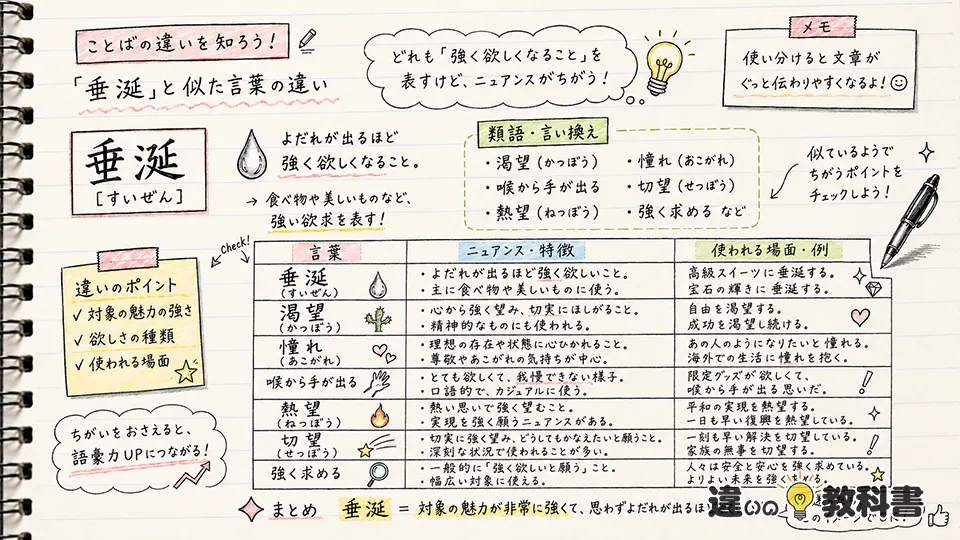 ことばの違いを知ろう!
「垂涎」と似た言葉の違い
どれも「強く欲しくなること」を
表すけど、ニュアンスがちがう!
メモ
使い分けると文章が
ぐっと伝わりやすくなるよ!
垂涎
[すいぜん]
よだれが出るほど
強く欲しくなること。
→ 食べ物や美しいものなど、
強い欲求を表す!
類語・言い換え
・渇望(かつぼう)
・憧れ(あこがれ)
・喉から手が出る
・切望(せつぼう)
・熱望(ねつぼう)
・強く求める など
似ているようで
ちがうポイントを
チェックしよう!
Check!
違いのポイント
✓ 対象の魅力の強さ
✓ 欲しさの種類
✓ 使われる場面
ちがいをおさえると、
語彙力UPにつながる!
言葉
ニュアンス・特徴
使われる場面・例
垂涎
(すいぜん)
・よだれが出るほど強く欲しいこと。
・主に食べ物や美しいものに使う。
高級スイーツに垂涎する。
宝石の輝きに垂涎する。
渇望
(かつぼう)
・心から強く望み、切実にほしがること。
・精神的なものにも使われる。
自由を渇望する。
成功を渇望し続ける。
憧れ
(あこがれ)
・理想の存在や状態に心ひかれること。
・尊敬やあこがれの気持ちが中心。
あの人のようになりたいと憧れる。
海外での生活に憧れを抱く。
喉から手が出る
・とても欲しくて、我慢できない様子。
・口語的で、カジュアルに使う。
限定グッズが欲しくて、
喉から手が出る思いだ。
熱望
(ねつぼう)
・熱い思いで強く望むこと。
・実現を強く願うニュアンスがある。
平和の実現を熱望する。
一日も早い復興を熱望している。
切望
(せつぼう)
・切実に強く望み、どうしてもかなえたいと願うこと。
・深刻な状況で使われることが多い。
一刻も早い解決を切望している。
家族の無事を切望する。
強く求める
・一般的に「強く欲しいと願う」こと。
・幅広い対象に使える。
人々は安全と安心を強く求めている。
よりよい未来を強く求める。
まとめ 垂涎 = 対象の魅力が非常に強くて、思わずよだれが出るほ
違いの教科書